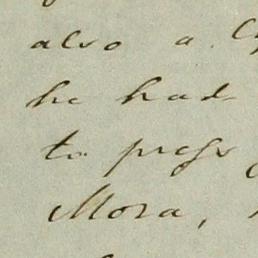 also a
he had
to press
Mora,